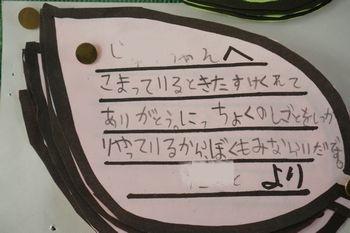 じ ゃんへ
こまっているときたすけくれて
ありがとう。にっちょくのしごとをしっか
りやっているから、ぼくもみならいだです。
と より